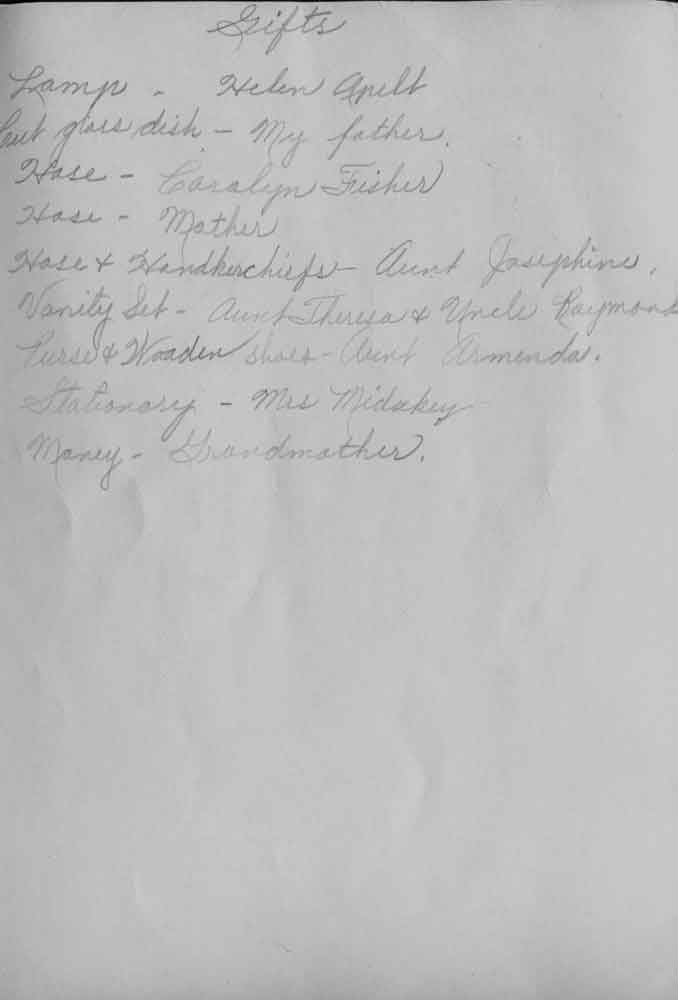 Gifts
Lamp - Helen Apelt
Cut glass dish - My father.
Hose - Carolyn Fisher
Hose - Mother
Hose & Handkerchiefs - Aunt Josephine.
Vanity Set - Aunt Theresa & Uncle Raymond
Purse & Wooden shoes - Aunt Armenda.
Stationary - Mrs Midakey
Money - Grandmother.